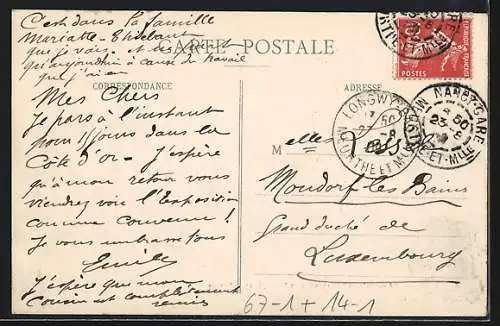 C'est dans la famille
Mariatte-Thiébaut
que je vais. et
qu'aujourdhui à cause de travail
que j'ai en
CARTE POSTALE
CORRESPONDANCE
ADRESSE
Mes Chers
Je pars à l'instant
pour 15 jours dans la
Côte d'Or - J'espère
qu'à mon retour vous
viendrez voir l'Exposition
comme convenu!
Je vous embrasse tous
Emile
J'espère que mon
cousin est complètement
remis
POSTES
LONGWY
MEURTHE ET M
NANCY-GARE
ET-MLLE
M elles
Mondorf les Bains
Grand duché de
Luxembourg
67-1+14-1